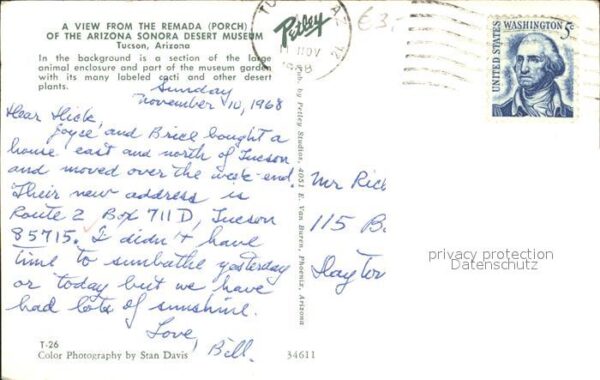 A VIEW FROM THE REMADA (PORCH)
OF THE ARIZONA SONORA DESERT MUSEUM
Tucson, Arizona
In the background is a section of the large
animal enclosure and part of the museum garden
with its many labeled cacti and other desert
plants.
Sunday
November 10, 1968
Dear Dick,
Joyce and Brice bought a
house east and north of Tucson
and moved over the week-end.
Their new address is
Route 2 Box 711D, Tucson
85715. I didn't have
time to sunbathe yesterday
or today but we have
had lots of sunshine.
Love,
Bill
T-26
Color Photography by Stan Davis
34611
Petley
Pub. by Petley Studios, 4051 E. Van Buren, Phoenix, Arizona
AZ
NOV
1968
€3,-
UNITED STATES
WASHINGTON 5c
Mr Rich
115 B
Dayton
privacy protection
Datenschutz